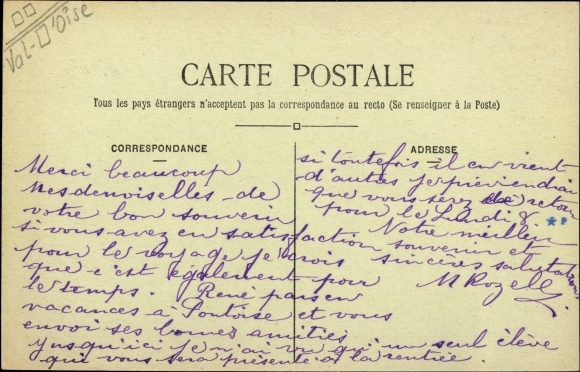 Val-d'Oise
CARTE POSTALE
Tous les pays étrangers n'acceptent pas la correspondance au recto (Se renseigner à la Poste)
CORRESPONDANCE
Merci beaucoup
Mesdemoiselles de
votre bon souvenir
si vous avez eu satisfaction
pour le voyage je crois
que c'est également pour
le temps. René pars en
vacances à Pontoise et vous
envoi ses bonnes amitiés
Jusqu'ici je n'ai vu qu'un seul élève
qui vous sera présenté à la rentrée.
ADRESSE
si toutefois il en vient
d'autres je préviendrai
que vous serez de retour
pour le Lundi 8.
Notre meilleur
souvenir et
sincères salutations
M Rozell